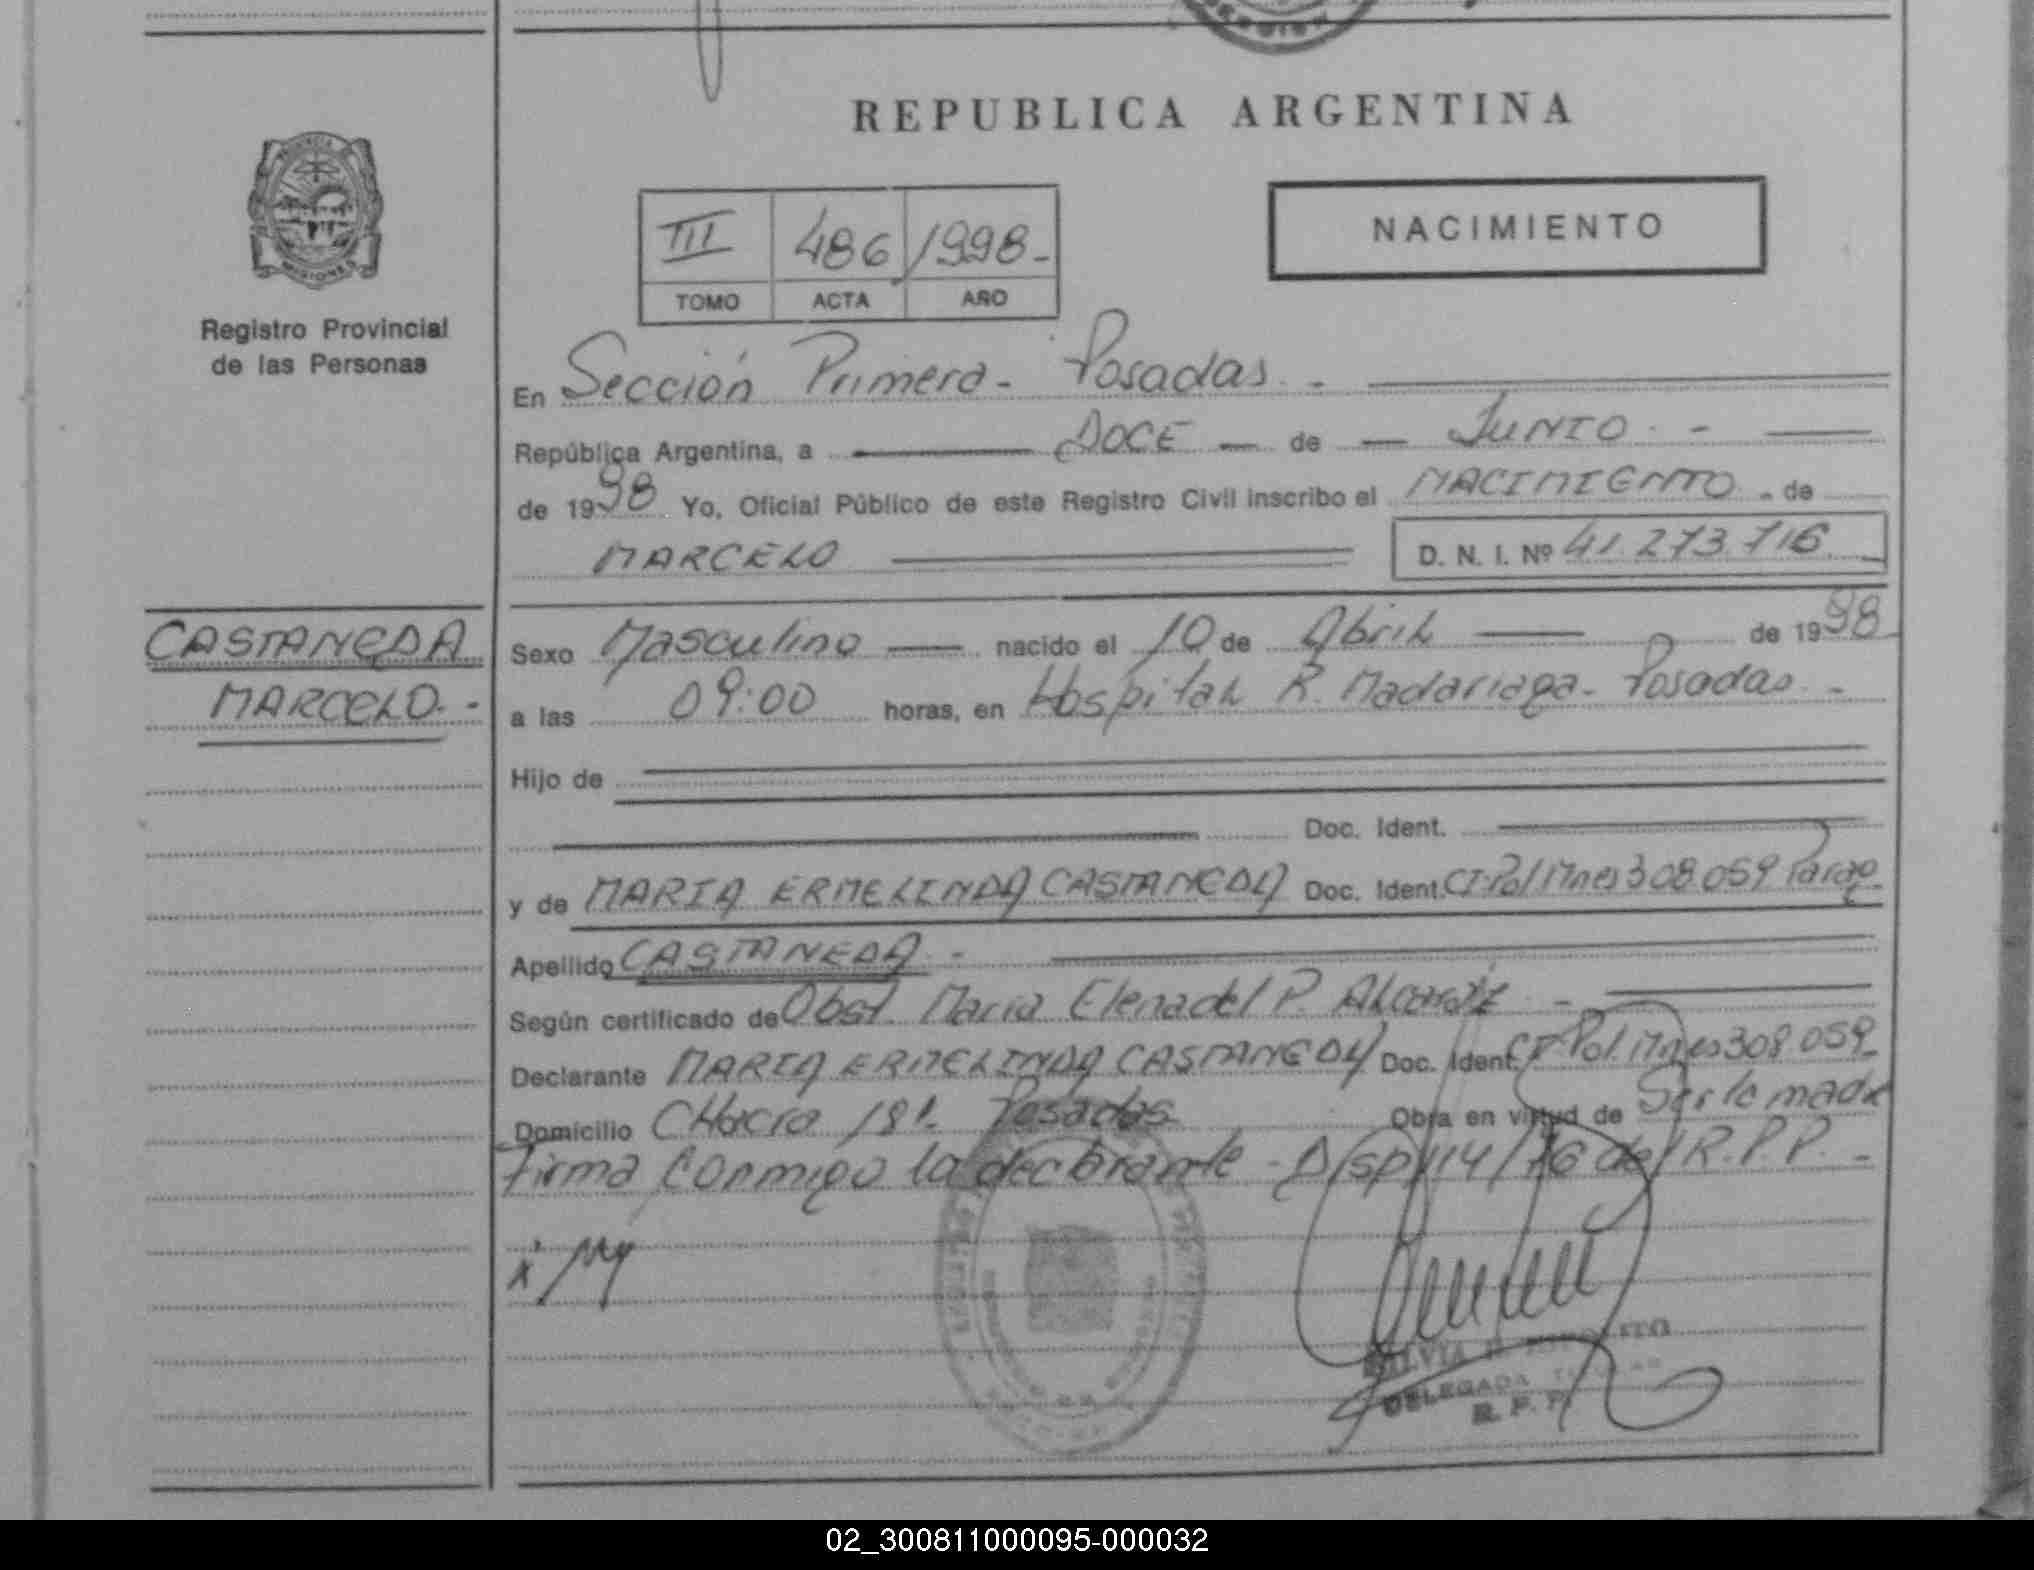 REPUBLICA ARGENTINA
PROVINCIA
MISIONES
Registro Provincial
de las Personas
III 486 1998-
TOMO ACTA AÑO
NACIMIENTO
En Sección Primera - Posadas. -
República Argentina, a DOCE — de — JUNIO. -
de 1998 Yo, Oficial Público de este Registro Civil inscribo el NACIMIENTO. de
MARCELO D. N. I. Nº 41.273.716
CASTANEDA
MARCELO. -
Sexo Masculino — nacido el 10 de Abril — de 1998
a las 09:00 horas, en Hospital R. Madariaga - Posadas. -
Hijo de
Doc. Ident.
y de MARIA ERMELINDA CASTANEDA Doc. Ident. CI. Pol Mnes 308.059 Parag
Apellido CASTANEDA. -
Según certificado de Obst. Maria Elena del P. Alcaraz -
Declarante MARIA ERMELINDA CASTANEDA Doc. Ident. CI. Pol. Mnes 308.059.
Domicilio CHacra 181. Posadas Obra en virtud de Ser la madre
Firma conmigo la declarante - Disp 114/76 del R.P.P. -
x
SILVIA
DELEGADA
R. P. P.
02_300811000095-000032